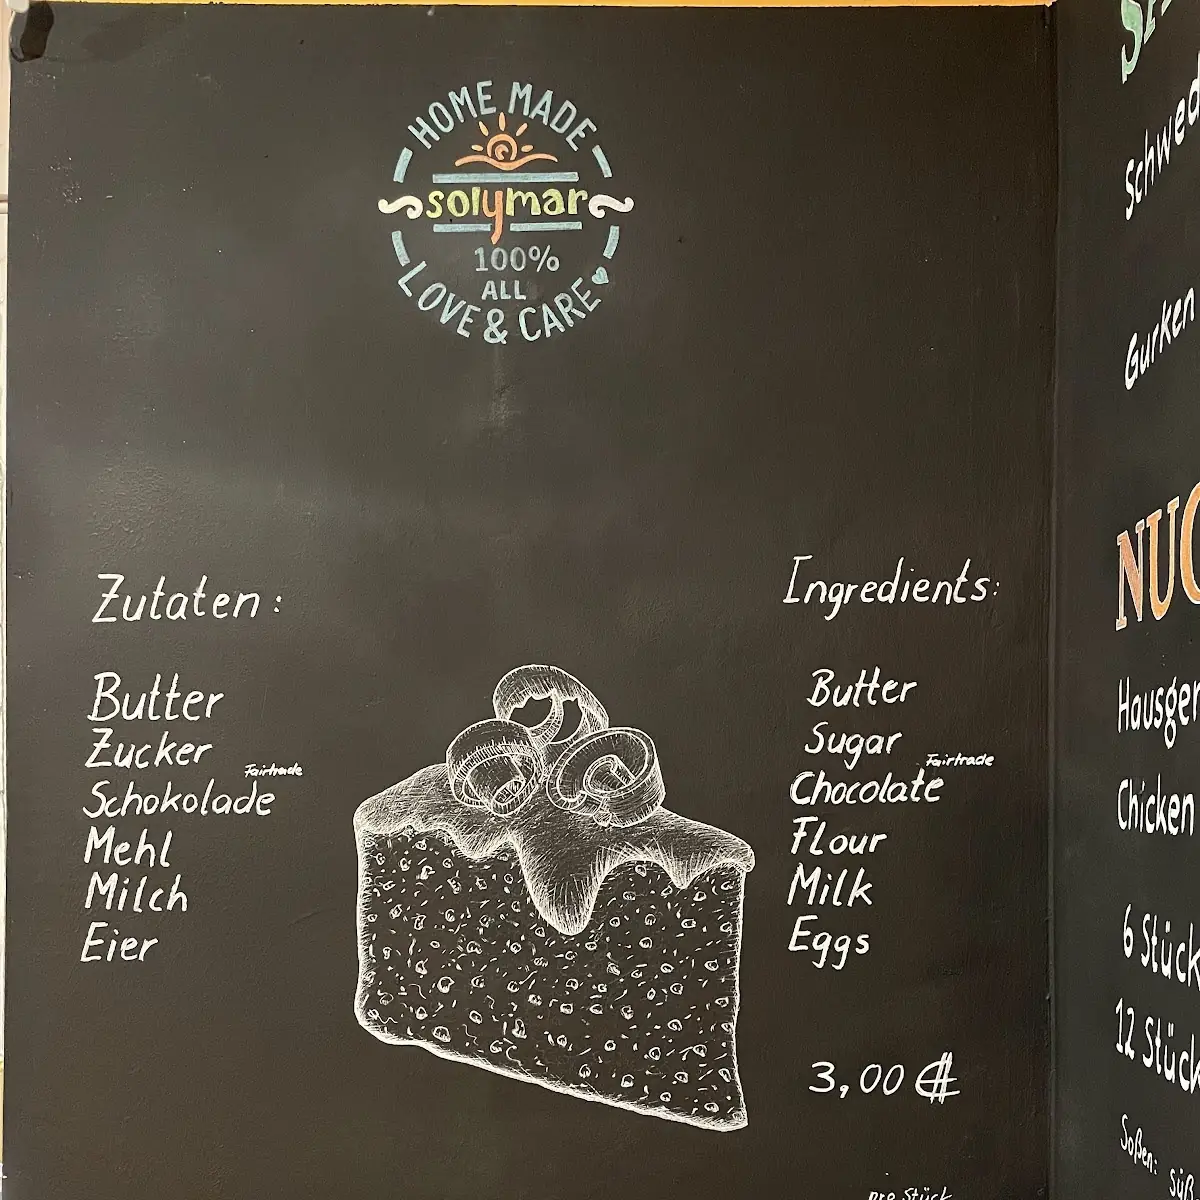 HOME MADE
solymar
100%
ALL
LOVE & CARE
Zutaten:
Butter
Zucker
Fairtrade
Schokolade
Mehl
Milch
Eier
Ingredients:
Butter
Sugar
Fairtrade
Chocolate
Flour
Milk
Eggs
3,00 ₵
pro Stück
Gurken
Chicken
6 Stück
12 Stück
Soßen: süß